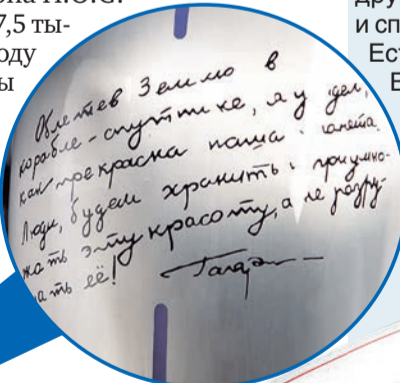 7,5 ты-
и сп
Облетев Землю в
корабле-спутнике, я у дел,
как прекрасна наша ланета.
Люди, будем хранить и приумно-
жать эту красоту, а не разру-
ать её!
Гагарин